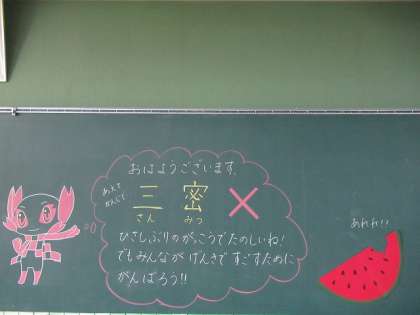 おはようございます。
あえて
かんじで
三密×
さんみつ
ひさしぶりのがっこうでたのしいね!
でもみんながげんきですごすために
がんばろう!!
あれれ!!